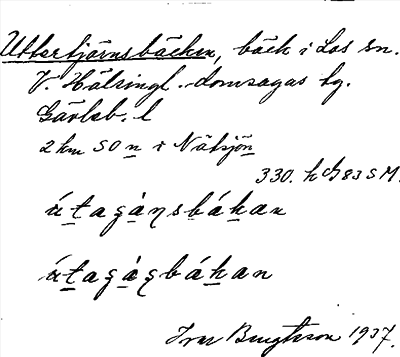 Uttertjärnsbäcken, bäck i Los sn.
V. Hälsingl. domsagas tg.
Gävleb. l
2 km SO n i Nätsjön
330. h G 83 S M.
útagàŋsbákan
útagàgbákan
Ivar Bengtsson 1937.